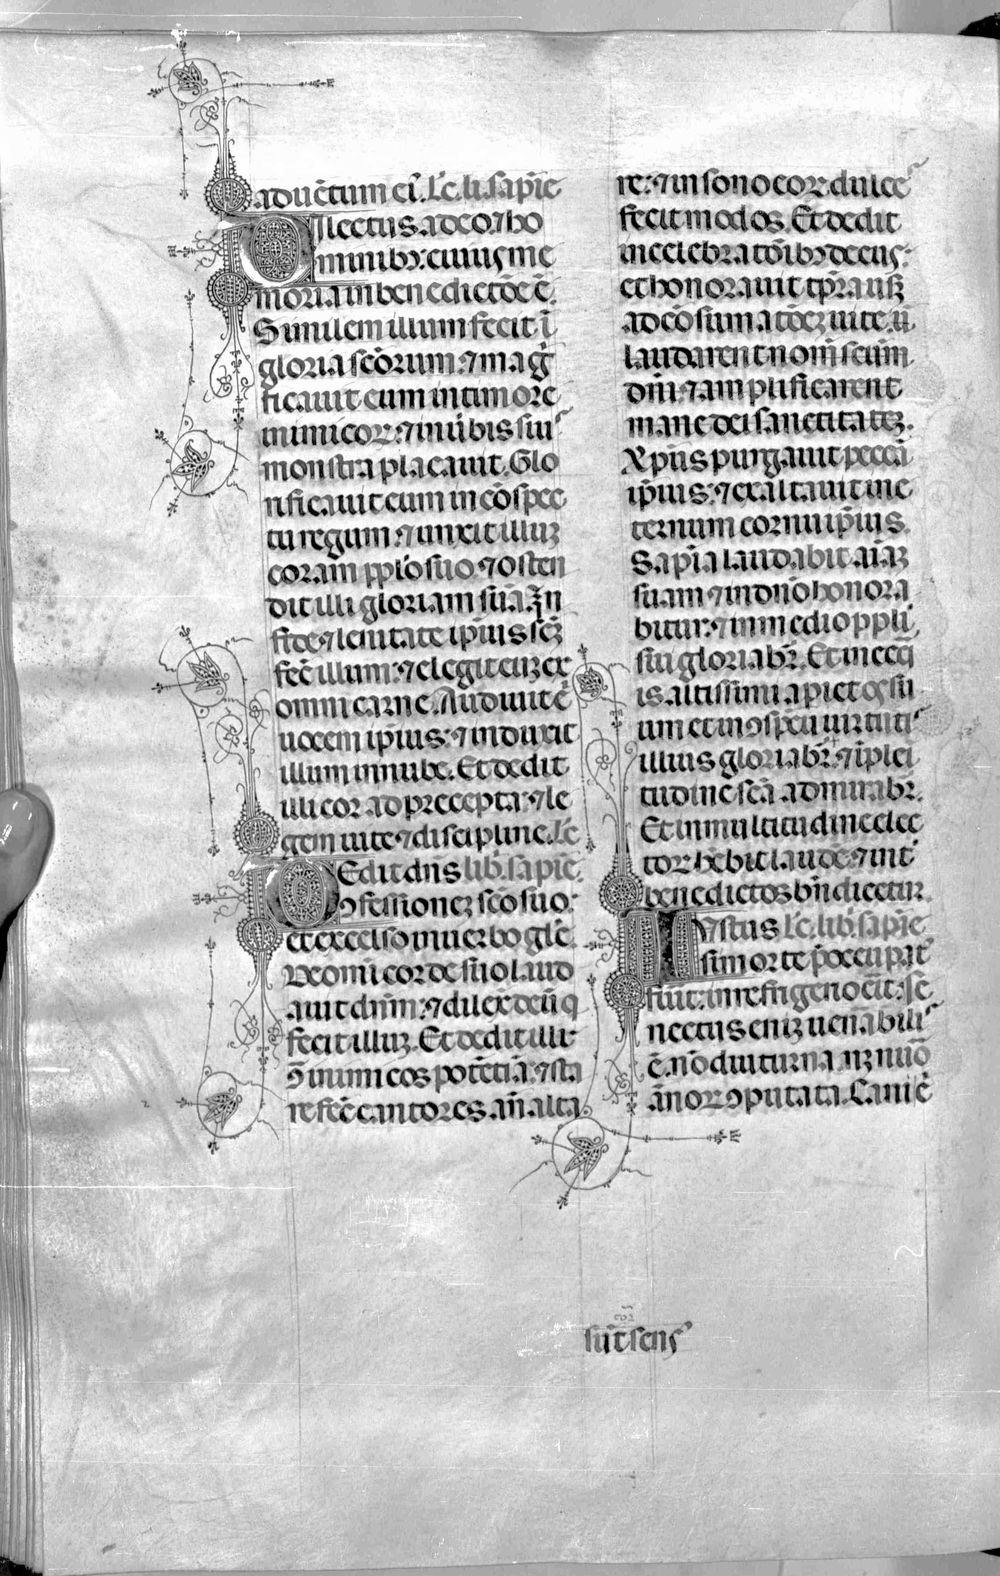 aduētum eī. Lc̄. li. sapīe
Dilectus a deo ⁊ ho
minibꝫ: cuius me
moria in benedictōe ē.
Similem illum fecit ī
gloria scōrum: ⁊ mag̅
ficauit eum in timore
inimicoꝝ: ⁊ in ūbis suis
monstra placauit. Glo
rificauit eum in cōspec
tu regum: ⁊ iunxit illuꝫ
coram pplō suo. ⁊ osten
dit illi gloriam suā. Jn
fide ⁊ lenitate ip̄ius scm̄
fec̄ illum: ⁊ elegit euꝫ ex
omni carne. Audiuit ē
uocem ip̄ius: ⁊ induxit
illum in nube. Et dedit
illi cor ad precepta: ⁊ le
gem uite ⁊ discipline. Lc̄
Dedit dn̄s lib̄. sapīe.
ꝯfessioneꝫ scō suo:
et excelso in uerbo glē.
De omī corde suo laud
auit dn̄m: ⁊ dilex̄ deū q̄
fecit illuꝫ. Et dedit illi
ꝯ inimicos potētiā: ⁊ sta
re fec̄ cantores. an̄ alta
re: ⁊ in sono eoꝝ dulces
fecit modos. Et dedit
in celebratōibꝫ decus:
et honorauit tp̄ra usqꝫ
ad cōsumatōeꝫ uite. ut
laudarent nom̄ scm̄
dn̄i: ⁊ amplificarent
mane dei sanctitateꝫ.
Xp̄us purgauit peccā
ip̄ius: ⁊ exaltauit in e
ternum cornu ip̄ius.
Sapīa laudabit aīaꝫ
suam ⁊ in dn̄o honora
bitur: ⁊ in medio ppli
sui gloriabr̄. Et in ecc̄q
is altissimi apiet os su
um et in ꝯspcū uirtutis
illius gloriabr̄: ⁊ ī plei
tudine scā admirabr̄.
Et in multitudine elec
toꝝ hēbit laudē: ⁊ int̄
benedictos bn̄dicetur.
Iustus Lc̄. lib̄. sapīe
si morte p̄occupat̄
fūit: in refrigerio er̄it. Se
nectus eniꝫ uenābilis
ē. nō diuturna. nꝫ nūo
ānoꝝ ꝯputata. Cani ē
sūt sens̄